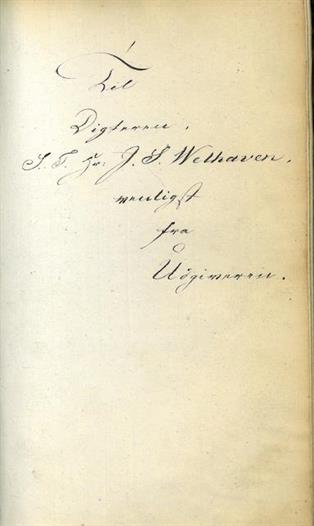 Til
Digteren,
S. T. Hr. J. S. Welhaven.
venligst
fra
Udgiveren.